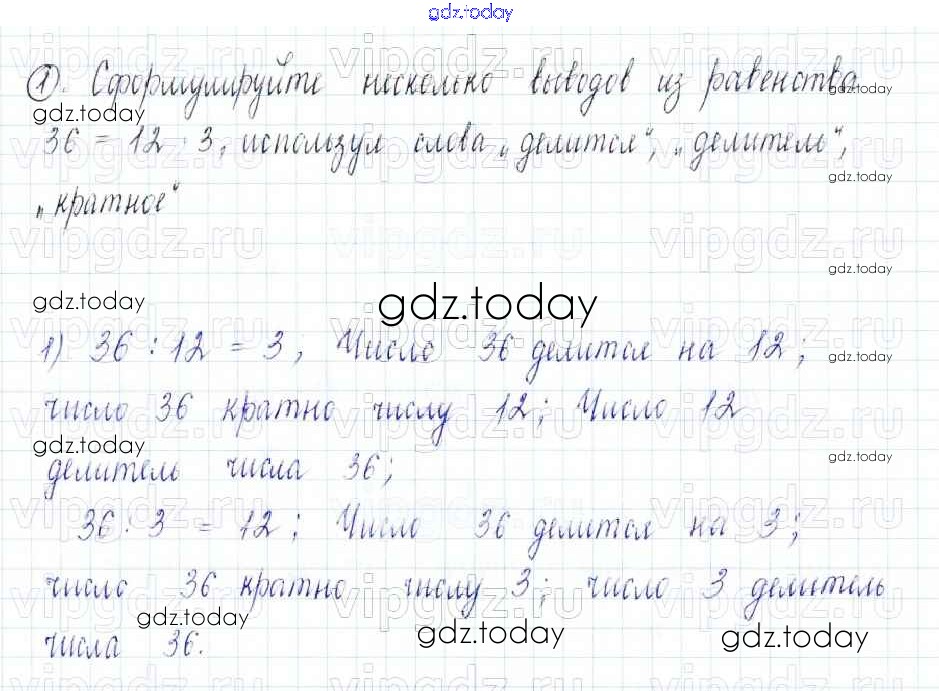 gdz.today
1). Сформулируйте несколько выводов из равенства
36 = 12 · 3, используя слова „делится“, „делитель“,
„кратное“
gdz.today
1) 36 : 12 = 3, Число 36 делится на 12;
число 36 кратно числу 12; Число 12
делитель числа 36;
36 : 3 = 12; Число 36 делится на 3;
число 36 кратно числу 3; число 3 делитель
числа 36.
gdz.today
gdz.today
gdz.today